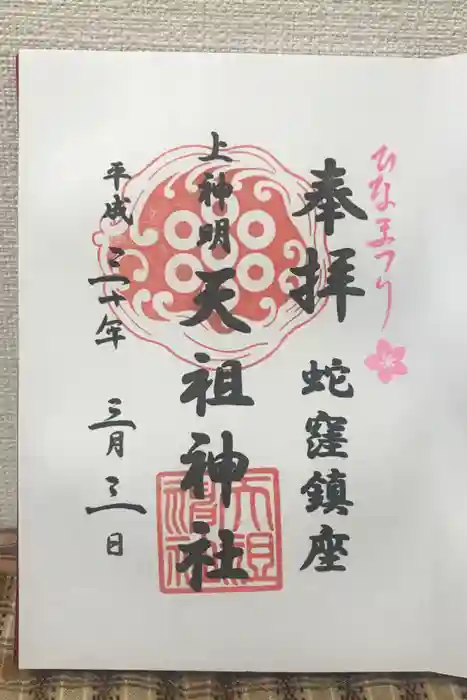 ひなまつり
奉拝
蛇窪鎮座
上神明
天祖神社
天祖神社
平成三十年
三月三日